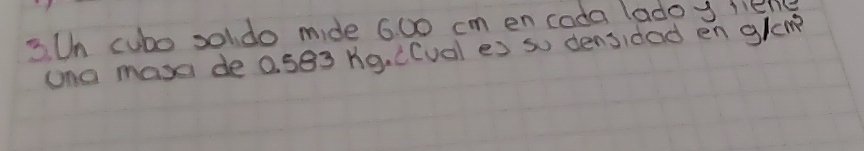 3. Un cubo solido mide 6.00 cm en cada lado y tiene
una masa de 0.583 Kg. ¿Cual es su densidad en g/cm³